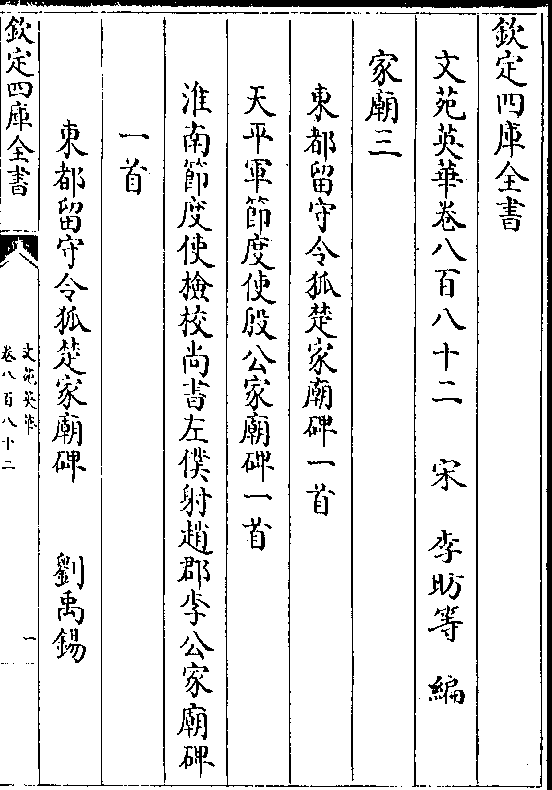 欽定四庫全書
文苑英華卷八百八十二 宋 李昉等 編
家廟三
東都留守令狐楚家廟碑一首
天平軍節度使殷公家廟碑一首
淮南節度使檢校尚書左僕射趙郡李公家廟碑
一首
東都留守令狐楚家廟碑 劉禹錫
欽定四庫全書
文苑英華
卷八百八十二
一